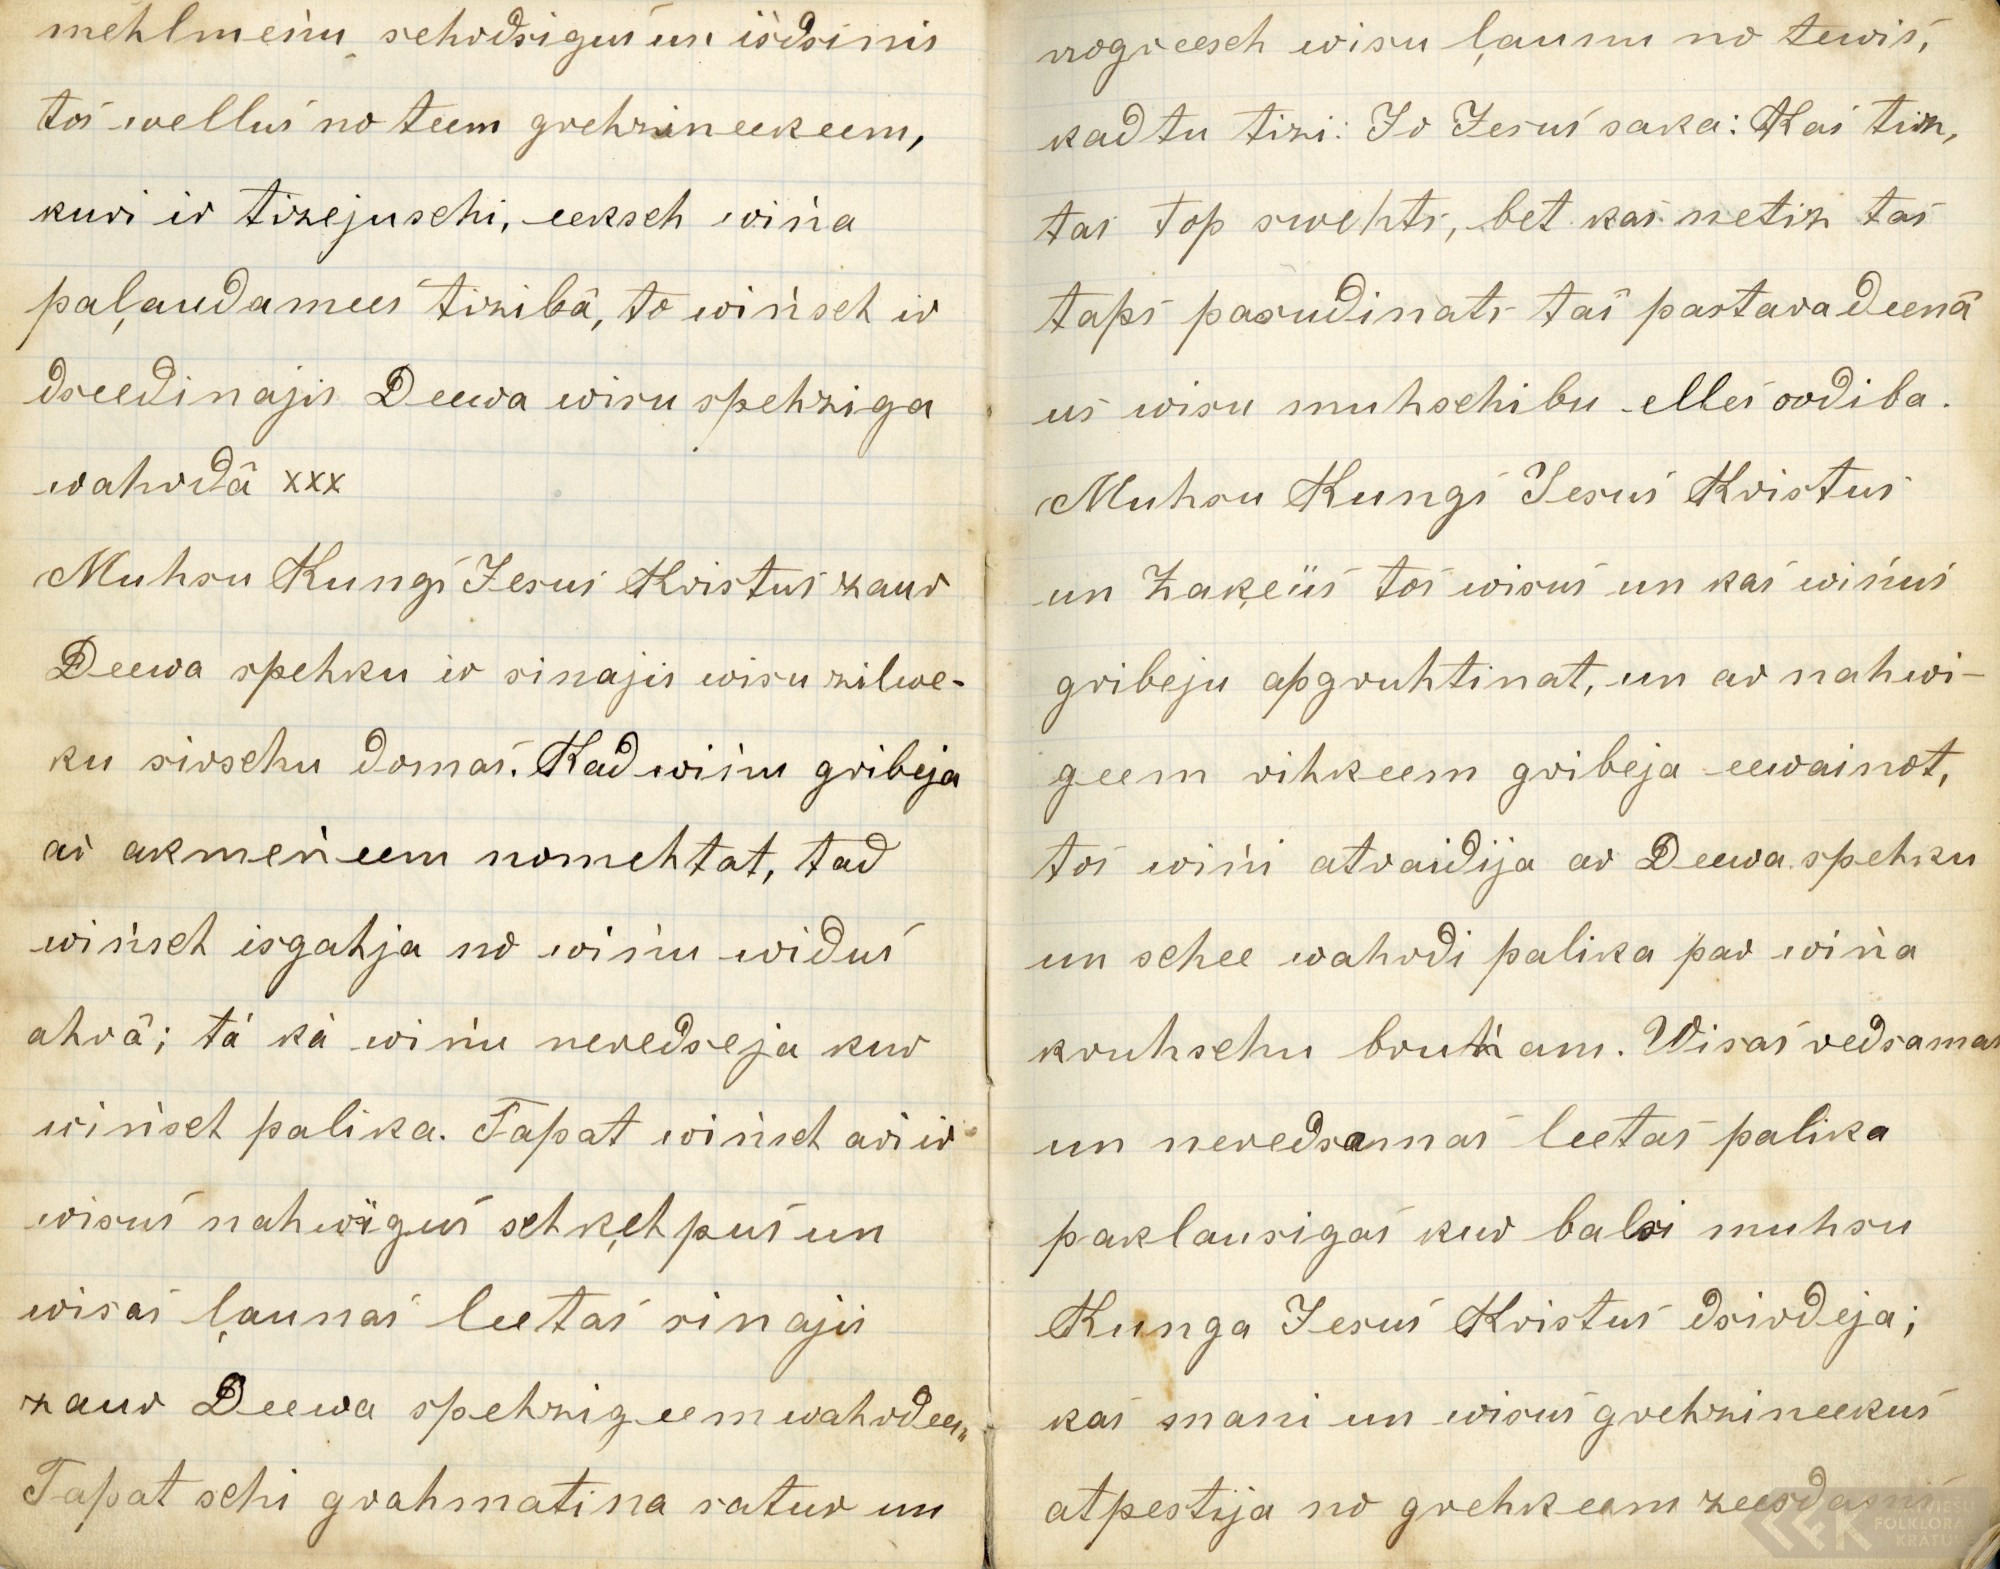 mehlmeńu sehrdsigus un isdsinis
tos wellus no teem grehzineekeem,
kuri ir tizejuschi, eeksch wińa
paļaudamees tizibâ, to wińsch ir
dseedinajis Deewa wisu spehziga
wahrdâ xxx
Muhsu Kungs Jesus Kristus zaur
Deewa spehku ir sinajis wisu zilwe-
ku sirschu domas. Kad wińu gribeja
ar akmeńeem nomehtat, tad
wińsch isgahja no wińu widus
ahrâ; tá ká wińu neredseja kur
wińsch palika. Tapat wińsch ari ir
wisus nahwigus schķehpus un
wisas ļaunas leetas sinajis
zaur Deewa spehzigeem wahrdeem
Tapat schi grahmatina satur un
nogreesch wisu ļaunu no tewis,
kad tu tizi: Jo Jesus saka: Kas tiz,
tas top swehts, bet kas netiz tas
taps pasudinats tas pastara deenâ
us wisu muhschibu elles sodiba.
Muhsu Kungs Jesus Kristus
un Zaķeus tos wisus un kas wińus
gribeju apgruhtinat, un ar nahwi-
geem rihkeem gribeja eewainot,
tos wińi atraidija ar Deewa spehku
un schee wahrdi palika par wińa
kruhschu bruńam. Wisas redsamas
un neredsamas leetas palika
paklausigas kur balsi muhsu
Kunga Jesus Kristus dsirdeja;
kas mani un wisus grehzineekus
atpestija no grehkeem zeesdams
LFK
FOLKLORAS
KRATUVE